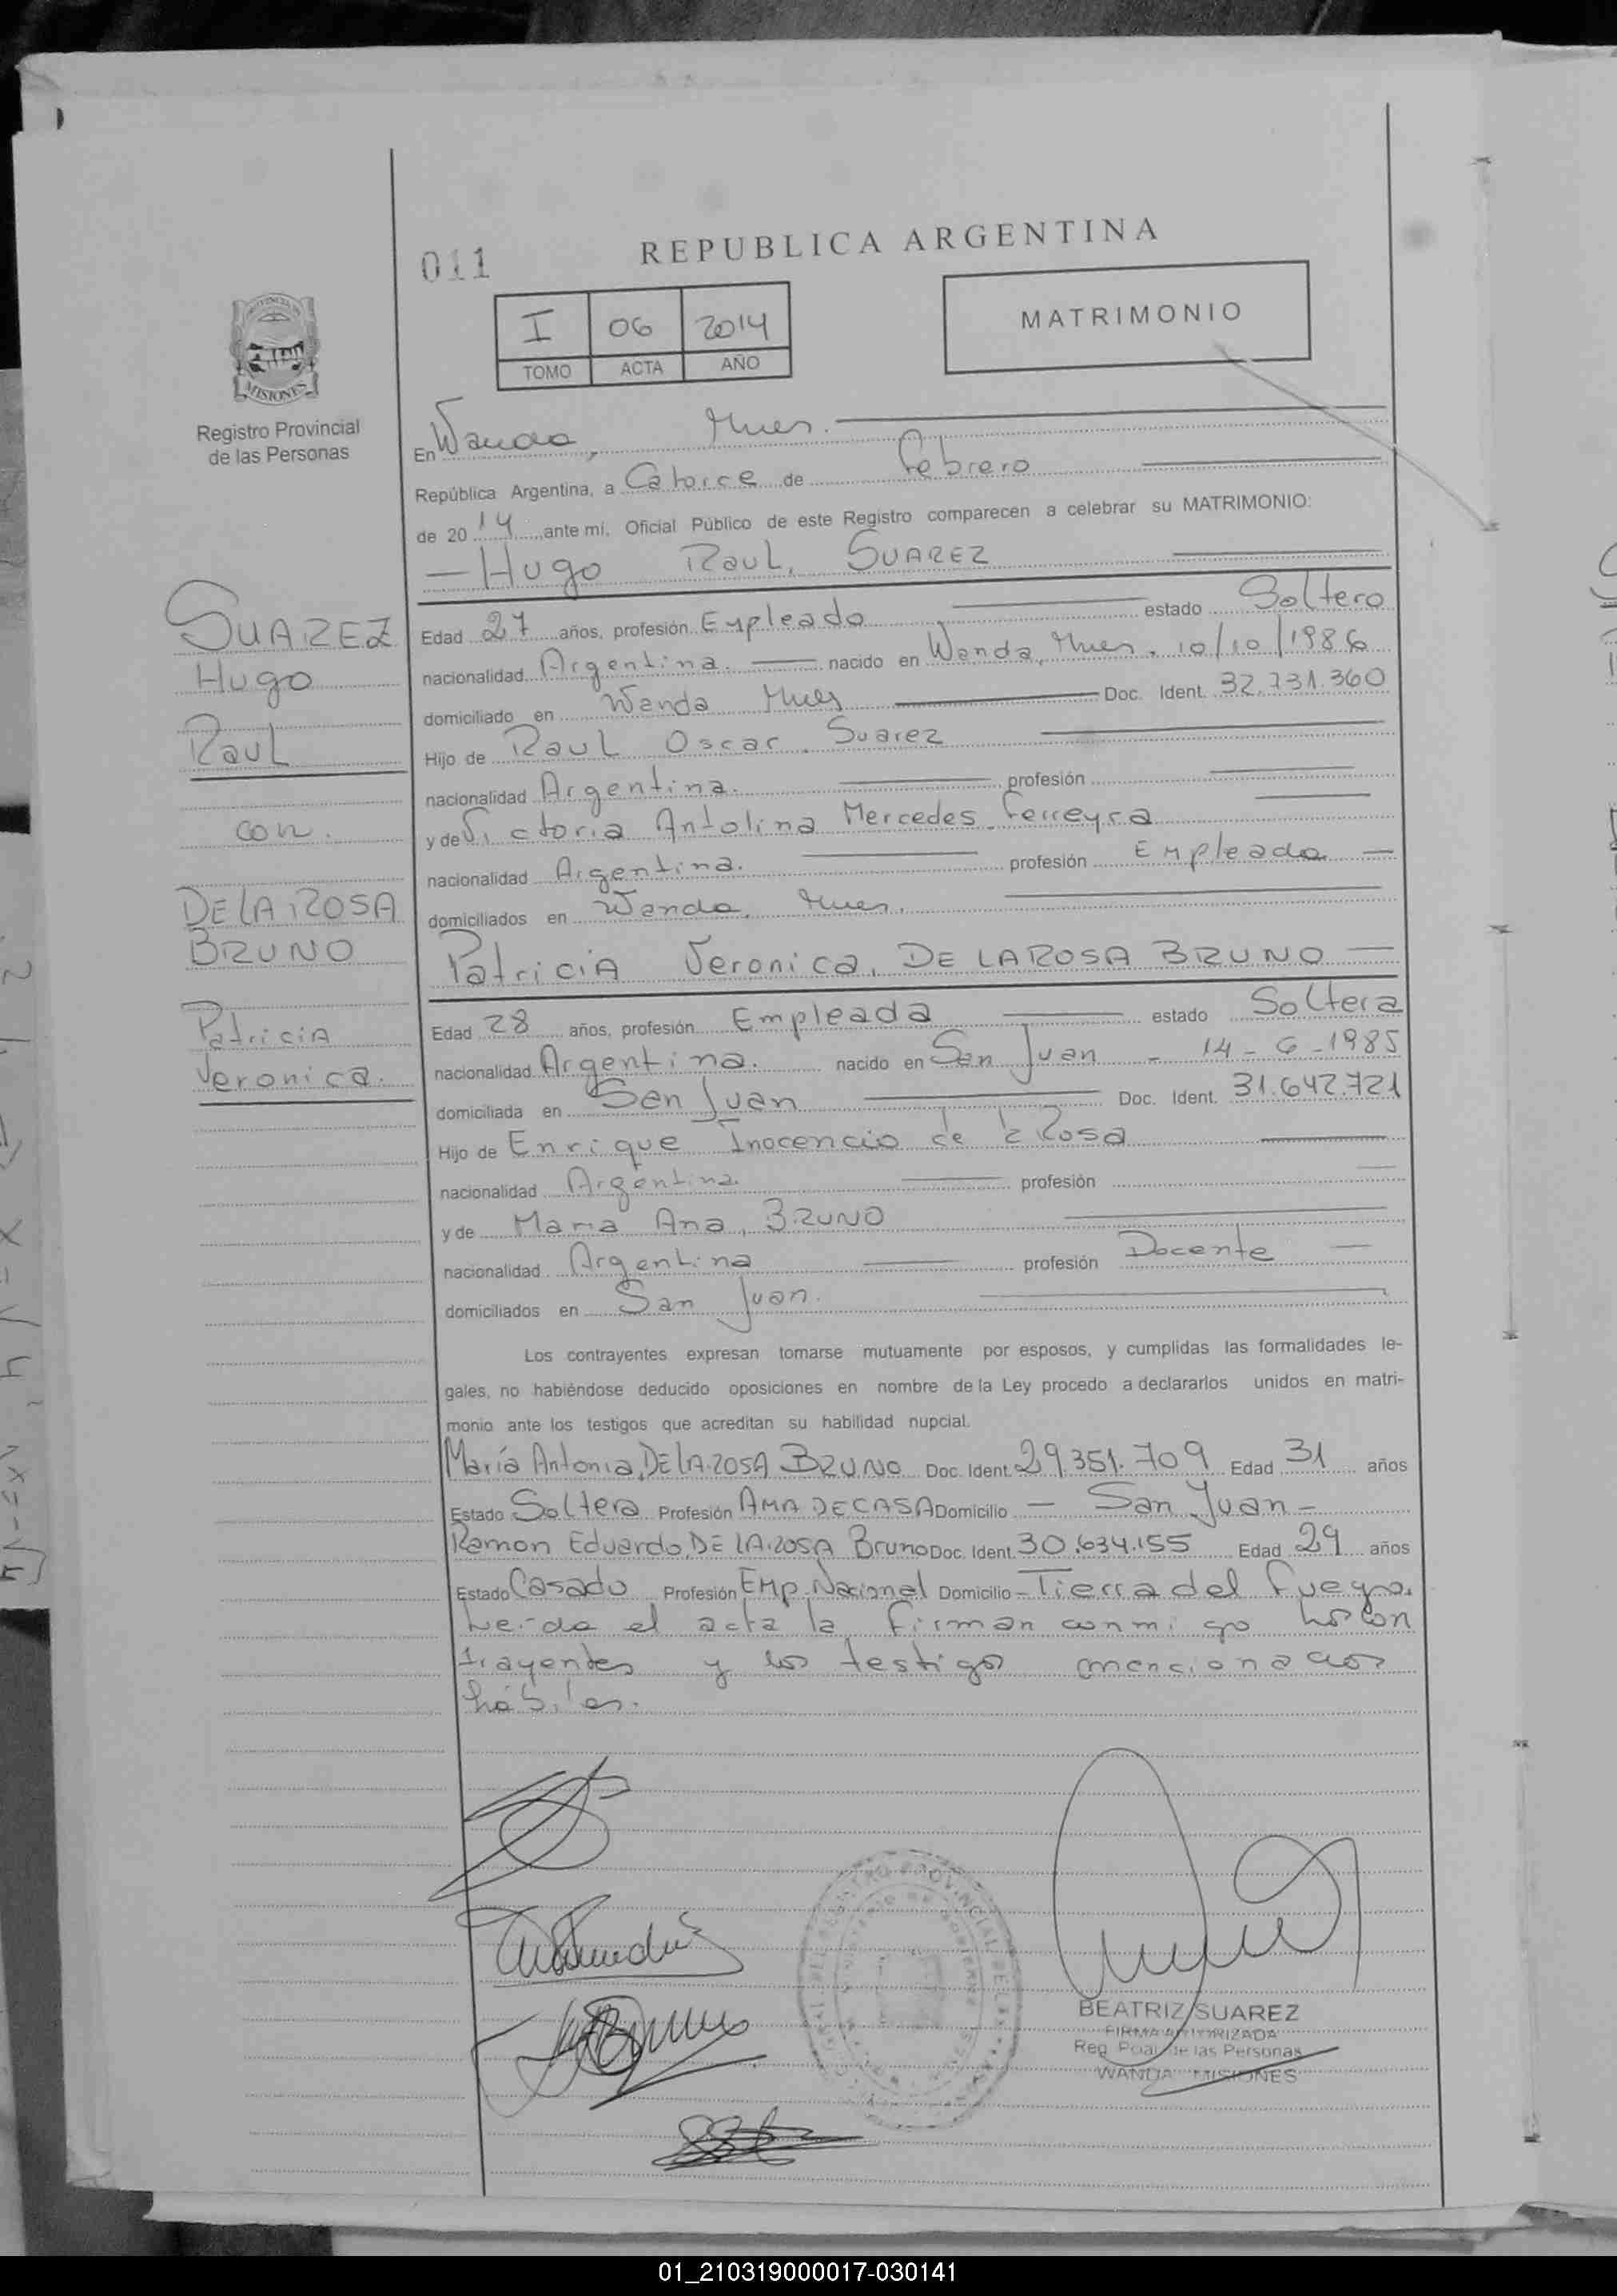 011
REPUBLICA ARGENTINA
I 06 2014
TOMO ACTA AÑO
MATRIMONIO
PROVINCIA
MISIONES
Registro Provincial
de las Personas
En Wanda, Mnes.
República Argentina, a Catorce de Febrero
de 2014, ante mí, Oficial Público de este Registro comparecen a celebrar su MATRIMONIO:
— Hugo Raul, SUAREZ
SUAREZ
Hugo
Raul
con.
DE LA ROSA
BRUNO
Patricia
Veronica.
Edad 27 años, profesión Empleado estado Soltero
nacionalidad Argentina. nacido en Wanda, Mnes. 10/10/1986
domiciliado en Wanda Mnes Doc. Ident. 32.731.360
Hijo de Raul Oscar Suarez
nacionalidad Argentina. profesión
y de Victoria Antolina Mercedes Ferreyra
nacionalidad Argentina. profesión Empleada —
domiciliados en Wanda, Mnes.
Patricia Veronica, DE LA ROSA BRUNO —
Edad 28 años, profesión Empleada estado Soltera
nacionalidad Argentina. nacido en San Juan - 14-6-1985
domiciliada en San Juan Doc. Ident. 31.642.721
Hijo de Enrique Inocencio de la Rosa
nacionalidad Argentina profesión
y de Maria Ana, BRUNO
nacionalidad Argentina profesión Docente —
domiciliados en San Juan.
Los contrayentes expresan tomarse mutuamente por esposos, y cumplidas las formalidades le-
gales, no habiéndose deducido oposiciones en nombre de la Ley procedo a declararlos unidos en matri-
monio ante los testigos que acreditan su habilidad nupcial.
María Antonia, DE LA ROSA BRUNO Doc. Ident. 29.351.709 Edad 31 años
Estado Soltera Profesión AMA DE CASA Domicilio — San Juan —
Ramon Eduardo, DE LA ROSA Bruno Doc. Ident. 30.634.155 Edad 29 años
Estado Casado Profesión Emp. Nacional Domicilio - Tierra del Fuego.
Leida el acta la firman conmigo los con
trayentes y los testigos mencionados
hábiles.
BEATRIZ SUAREZ
FIRMA AUTORIZADA
Reg. Pcial de las Personas
WANDA MISIONES
01_210319000017-030141